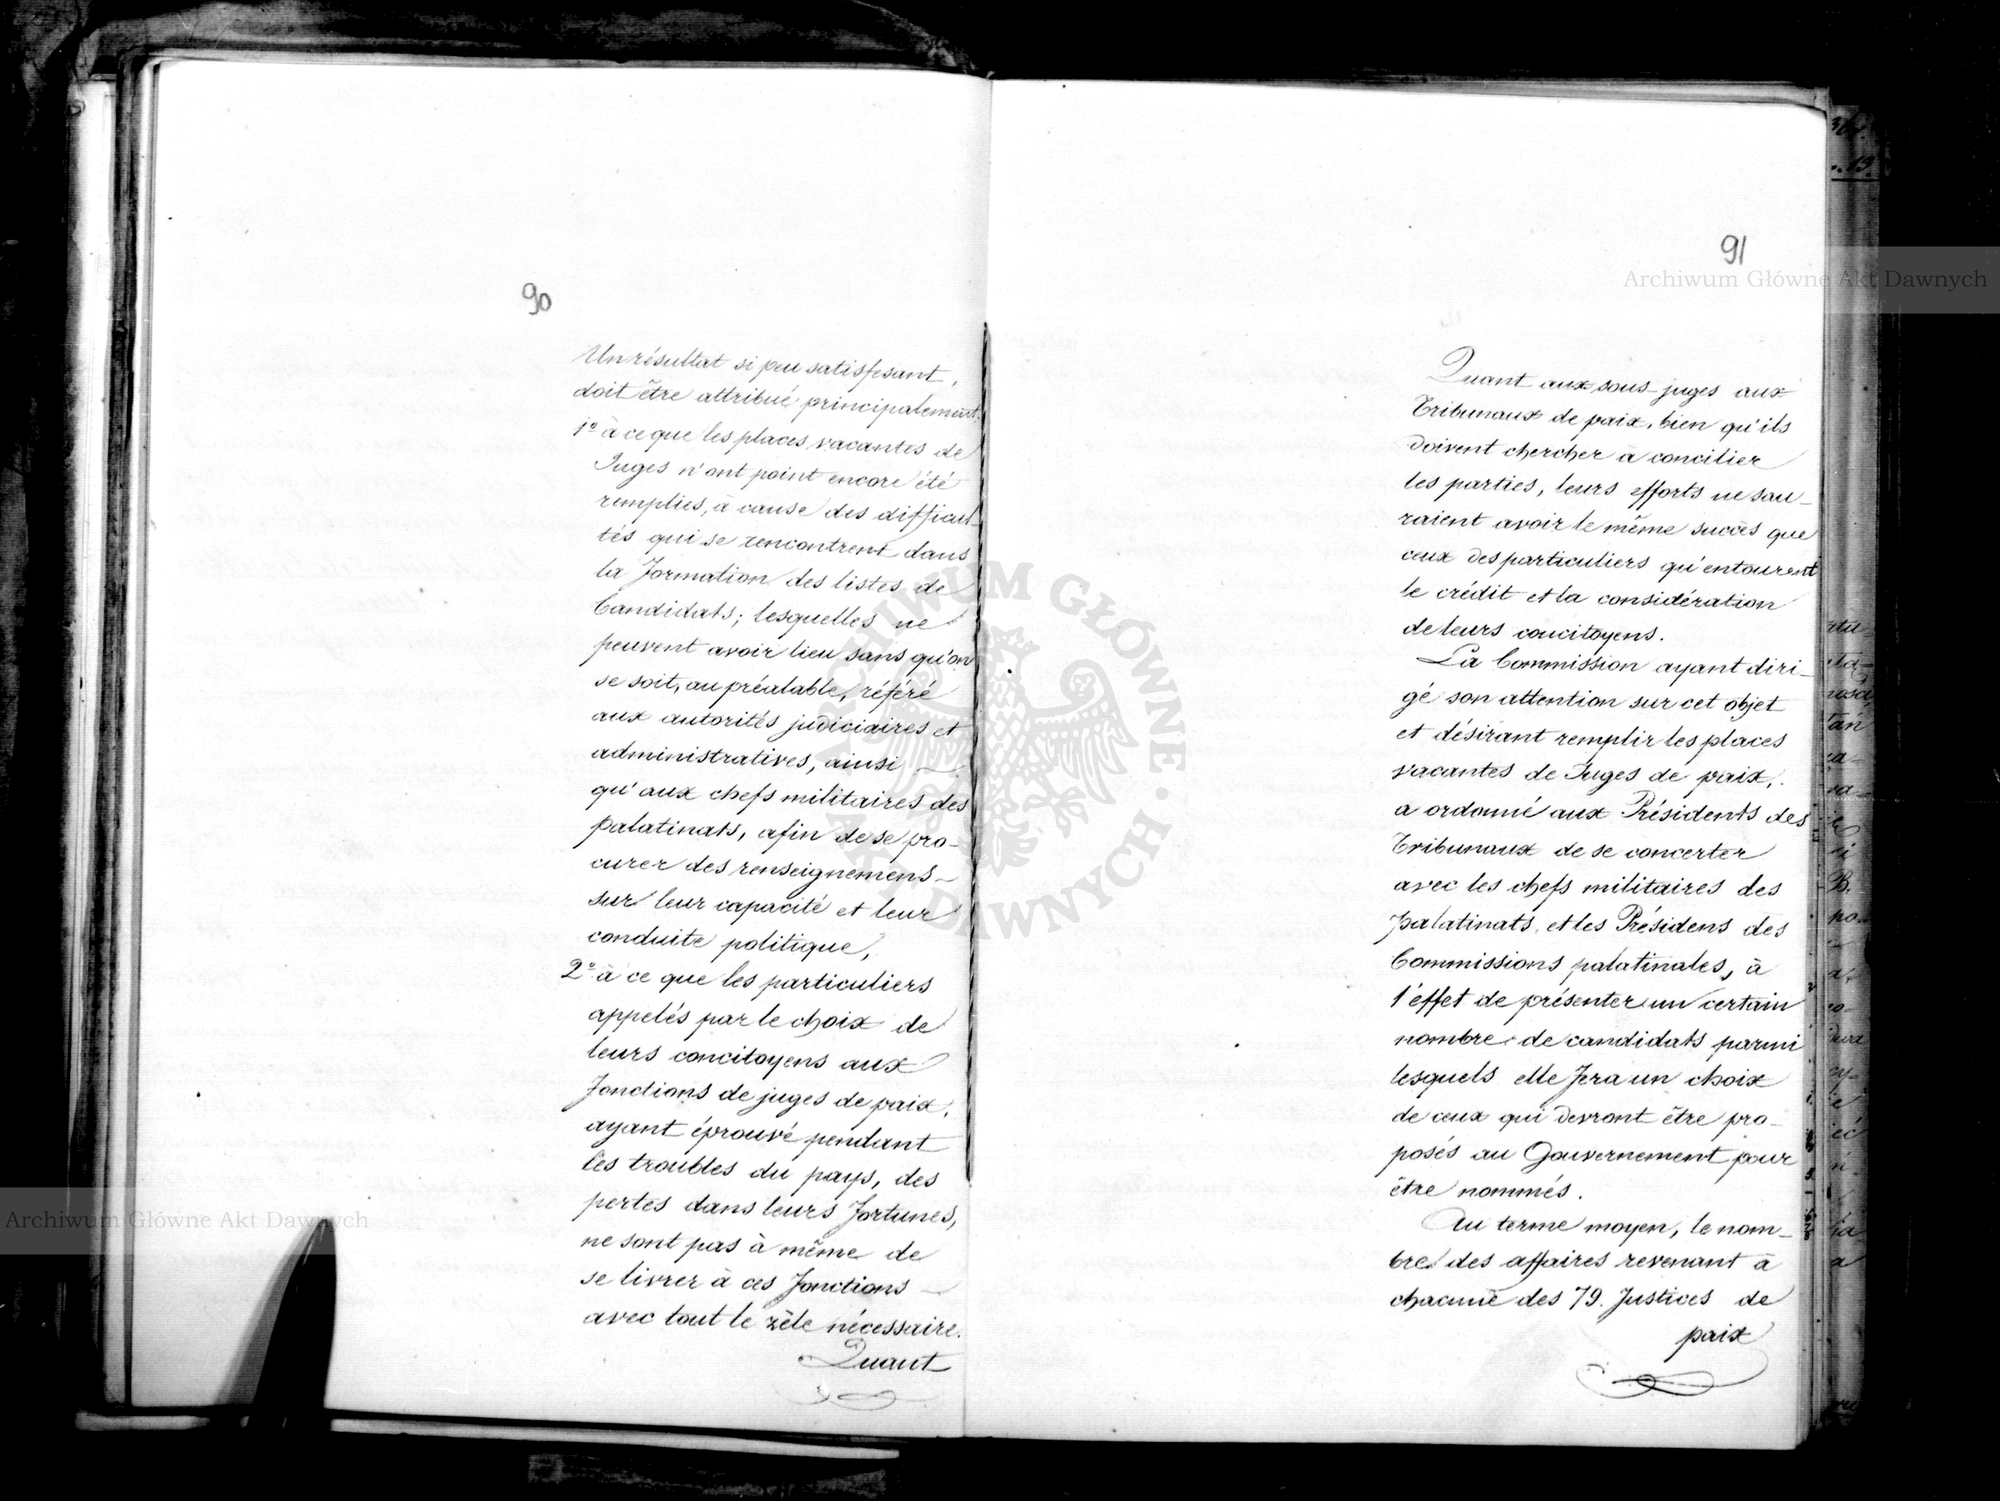 90
Un résultat si peu satisfesant,
doit être attribué principalement:
1º à ce que les places vacantes de
Juges n'ont point encore été
remplies, à cause des difficul-
tés qui se rencontrent dans
la formation des listes de
Candidats; lesquelles ne
peuvent avoir lieu sans qu'on
se soit, au préalable, référé
aux autorités judiciaires et
administratives, ainsi
qu'aux chefs militaires des
palatinats, afin de se pro-
curer des renseignemens
sur leur capacité et leur
conduite politique,
2º à ce que les particuliers
appelés par le choix de
leurs concitoyens aux
fonctions de juges de paix,
ayant éprouvé pendant
les troubles du pays, des
pertes dans leurs fortunes,
ne sont pas à même de
se livrer à ces fonctions
avec tout le zèle nécessaire.
Quant
91
Quant aux sous-juges aux
Tribunaux de paix, bien qu'ils
doivent chercher à concilier
les parties, leurs efforts ne sau-
raient avoir le même succès que
ceux des particuliers qu'entourent
le crédit et la considération
de leurs concitoyens.
La Commission ayant diri-
gé son attention sur cet objet
et désirant remplir les places
vacantes de Juges de paix,
a ordonné aux Présidents des
Tribunaux de se concerter
avec les chefs militaires des
palatinats, et les Présidens des
Commissions palatinales, à
l'effet de présenter un certain
nombre de candidats parmi
lesquels elle fera un choix
de ceux qui devront être pro-
posés au Gouvernement pour
être nommés.
Au terme moyen, le nom-
bre des affaires revenant à
chacune des 79. Justices de
paix
Archiwum Główne Akt Dawnych
Archiwum Główne Akt Dawnych
ARCHIWUM GŁÓWNE AKT DAWNYCH